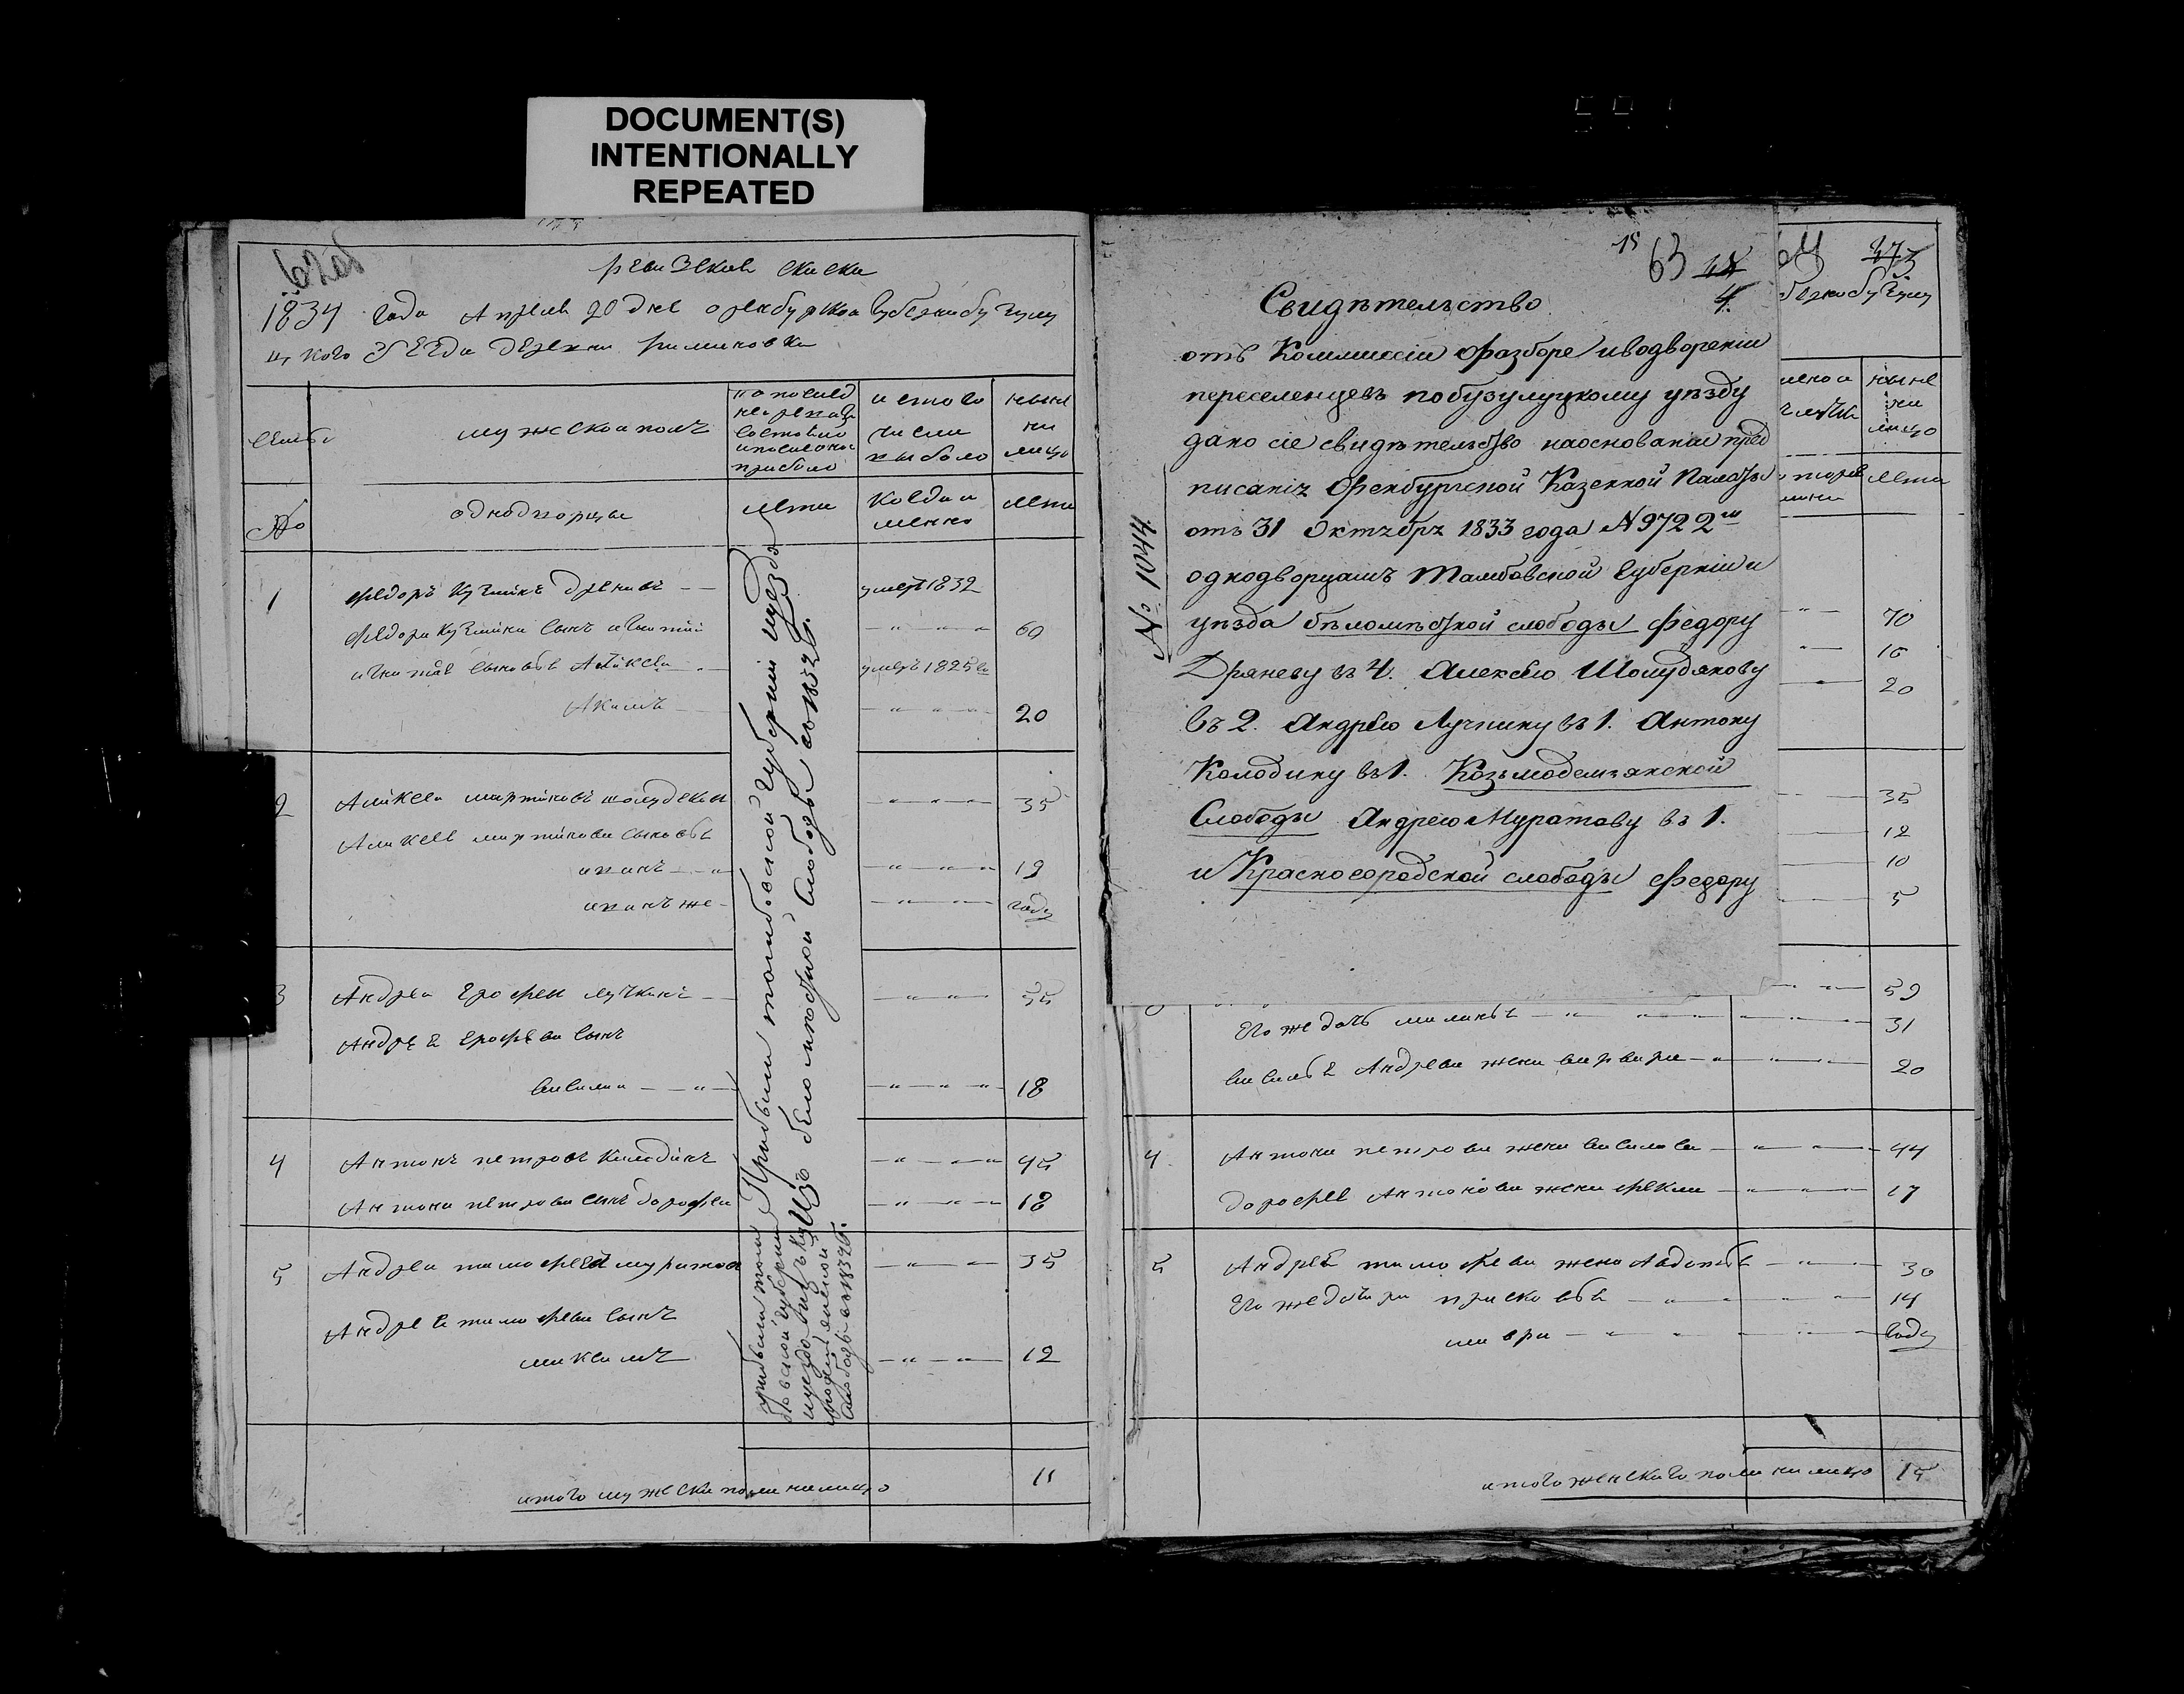 DOCUMENT(S)
INTENTIONALLY
REPEATED
62об
ревизская скаска
1834 года Апреля 20 дня оренбуркои губернибугулу
деревни
семьи
мужескои полъ
по последнеи ревизи состояло и после оной прибыло
из того числа выбыло
ныне на лицо
№
однодворцы
лета
когда именно
лета
1
Федоръ Кузминъ Дреневъ
умеръ 1832
Федора Кузмина сынъ игнатии
60
игнатия сыновья Алексеи
умеръ 1825 го
Акимъ
20
2
Алексеи мартиновъ шолудекои
35
Алексея мартинова сыновья
иванъ
19
иванъ же
году
3
Андреи Ерофеи лучкинъ
55
Андрея ерофева сынъ
василии
18
4
Антонъ петровъ Колодинъ
45
Антона петрова сынъ дорофеи
18
5
Андреи тимофеевъ муратов
35
Андрея тимофева сынъ
максимъ
12
итого мужеска пола налицо
11
Прибыли тамбовской губерніи уезда
Изъ беломестной слободы въ 1832 г.
прибыли тамбовской губерніи
слободы въ 1832 г.
15
63
4.
Свидѣтельство
отъ Коммиссіи о разборе и водвореніи
переселенцевъ по бузулуцкому уѣзду
дано сіе свидѣтельство на основаніи пред
писанія Оренбургской Казенной Палаты
отъ 31 Октября 1833 года N 9722
однодворцамъ Тамбовской Губерніи и
уѣзда бѣломѣстной слободы Федору
Дряневу въ 4. Алексѣю Шолудякову
въ 2. Андрѣю Лучкину въ 1. Антону
Колодину въ 1. Козьмодемьянской
Слободы Андрею Муратову въ 1.
и Красногородской слободы Федору
№ 1044
ныне на лицо
лета
70
16
20
35
12
10
5
59
Его же дочь маланья
31
василья Андреева жена варвара
20
4
Антона петрова жена василиса
44
дорофея Антонова жена фекла
17
5
Андрея тимофева жена Авдотья
30
Его же дочери прасковья
14
мавра
году
итого женскаго пола налицо
15